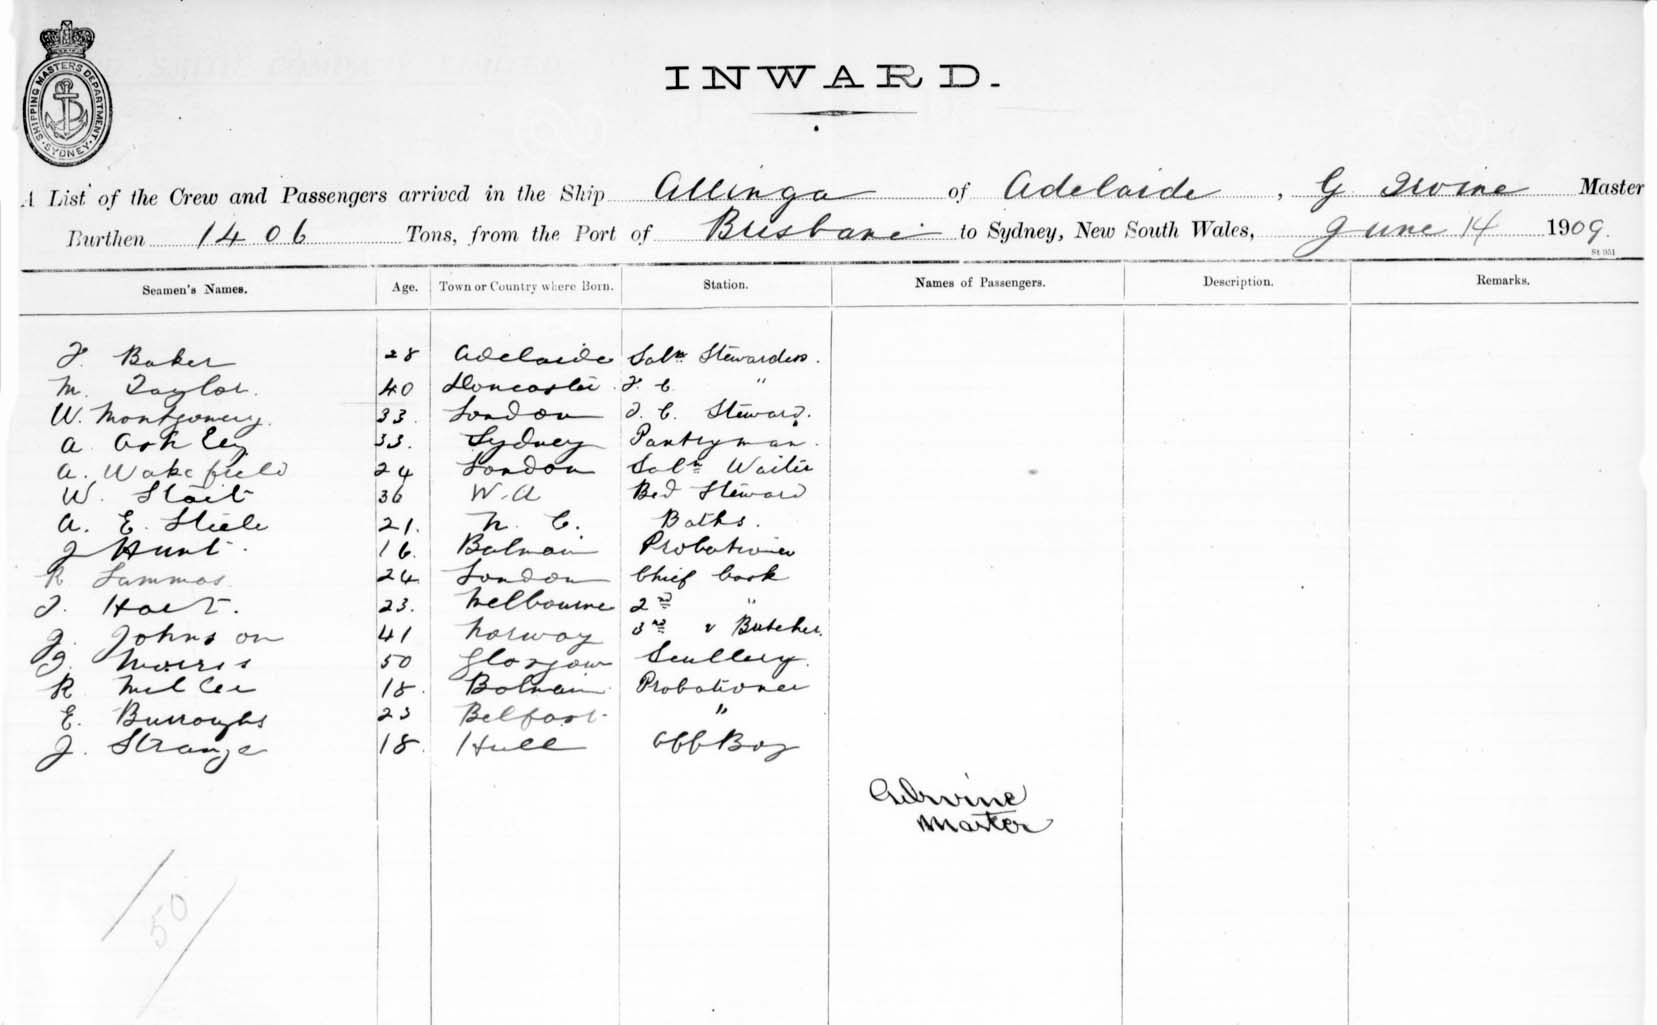 SHIPPING MASTERS DEPARTMENT
SYDNEY
INWARD.
A List of the Crew and Passengers arrived in the Ship Allinga of Adelaide, G Irvine Master
Burthen 1406 Tons, from the Port of Brisbane to Sydney, New South Wales, June 14 1909.
St 051
Seamen's Names. Age. Town or Country where Born. Station. Names of Passengers. Description. Remarks.
F. Baker 28 Adelaide Saln Stewardess.
M. Taylor. 40 Doncaster F. C "
W. Montgomery. 33. London F. C. Steward.
A. Ashley 33. Sydney Pantryman.
A. Wakefield 24 London Saln Waiter
W. Stait 36 W.A Bed Steward
A. E. Steele 21. N. C. Baths.
J Hunt. 16. Balmain Probationer
R Lammas 24 London Chief Cook
J. Hart. 23. Melbourne 2nd "
J. Johnson 41 Norway 3rd & Butcher.
J. Morris 50 Glasgow Scullery.
R Miller 18. Balmain Probationer
E. Burroughs 23 Belfast "
J. Strange 18. Hull Off Boy
G Irvine
Master
50